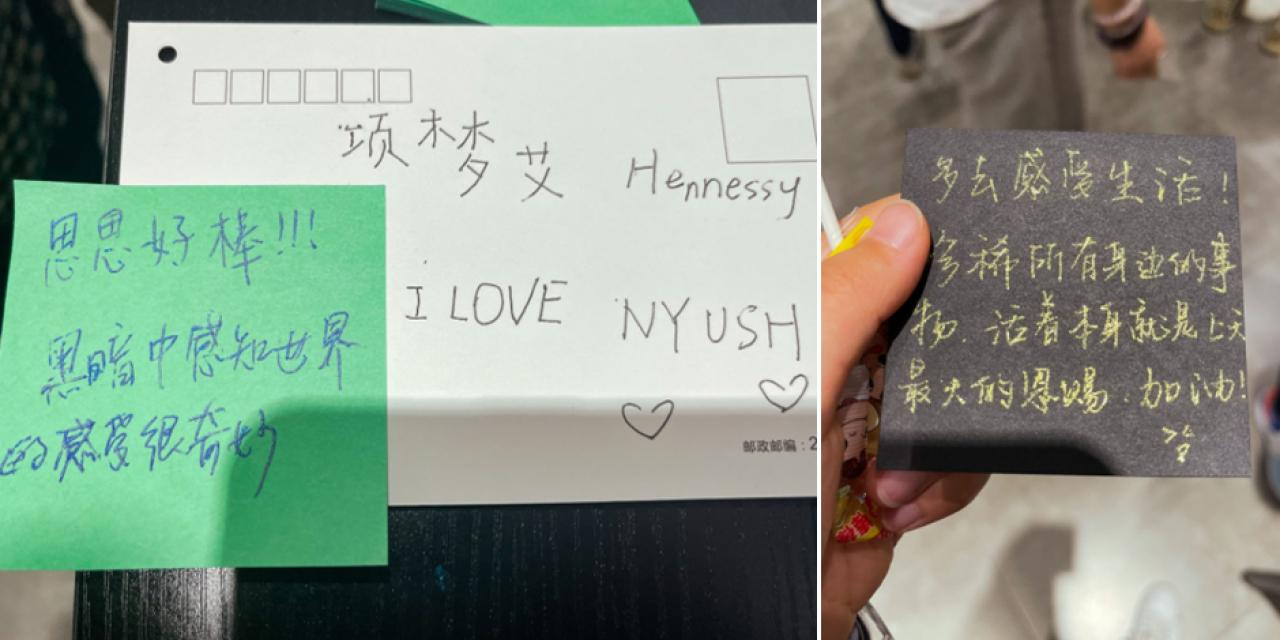 项梦艾 Hennessy
I LOVE NYUSH
邮政邮编：2
思思好棒!!!
黑暗中感知世界
的感受很奇妙
多去感受生活！
多稀所有身边的事
物. 活着本身就是上天
最大的恩赐. 加油!